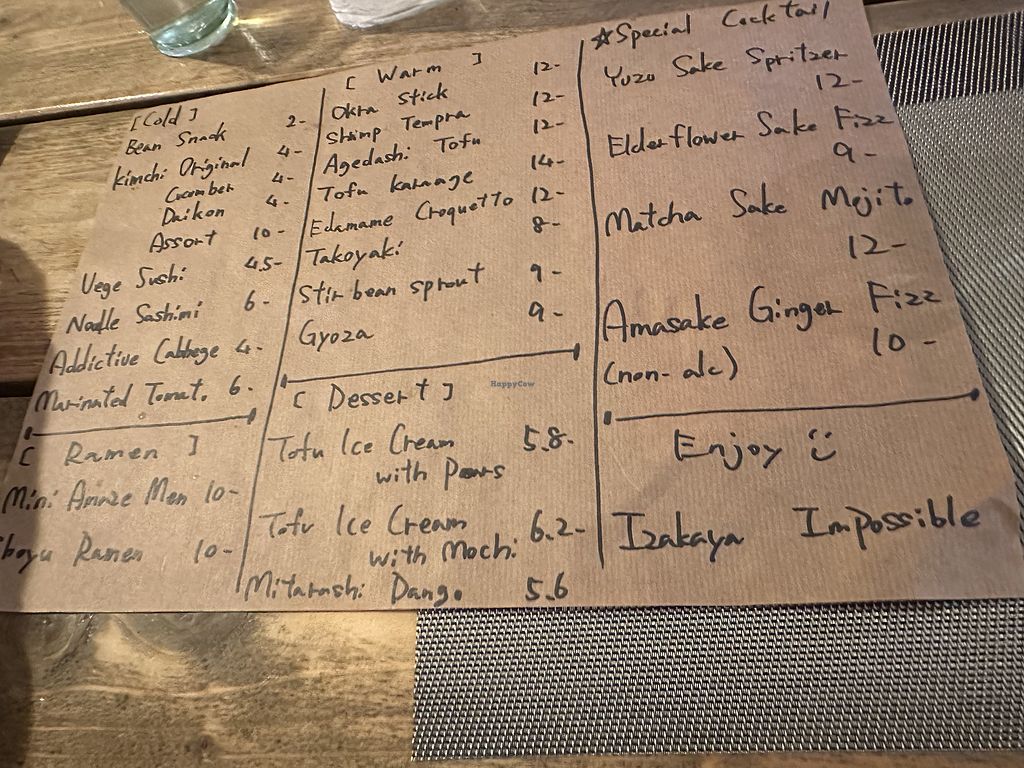 [Cold]
Bean Snack 2-
Kimchi Original 4-
Cucumber 4-
Daikon 4-
Assort 10-
Vege Sushi 4.5-
Noodle Sashimi 6-
Addictive Cabbege 4-
Marinated Tomato 6-
[ Ramen ]
Mini Men 10-
hoyu Ramen 10-
[ Warm ]
Okra stick 12-
Shrimp Tempra 12-
Agedashi Tofu 12-
Tofu karaage 14-
Edamame Croquetto 12-
Takoyaki 8-
Stir bean sprout 9-
Gyoza 9-
[ Dessert ]
Tofu Ice Cream 5.8-
with Pears
Tofu Ice Cream 6.2-
with Mochi
Mitarashi Dango 5.6
☆Special Cocktail
Yuzu Sake Spritzer
12-
Elderflower Sake Fizz
9-
Matcha Sake Mojito
12-
Amasake Ginger Fizz
(non-alc) 10-
Enjoy
Izakaya Impossible
HappyCow